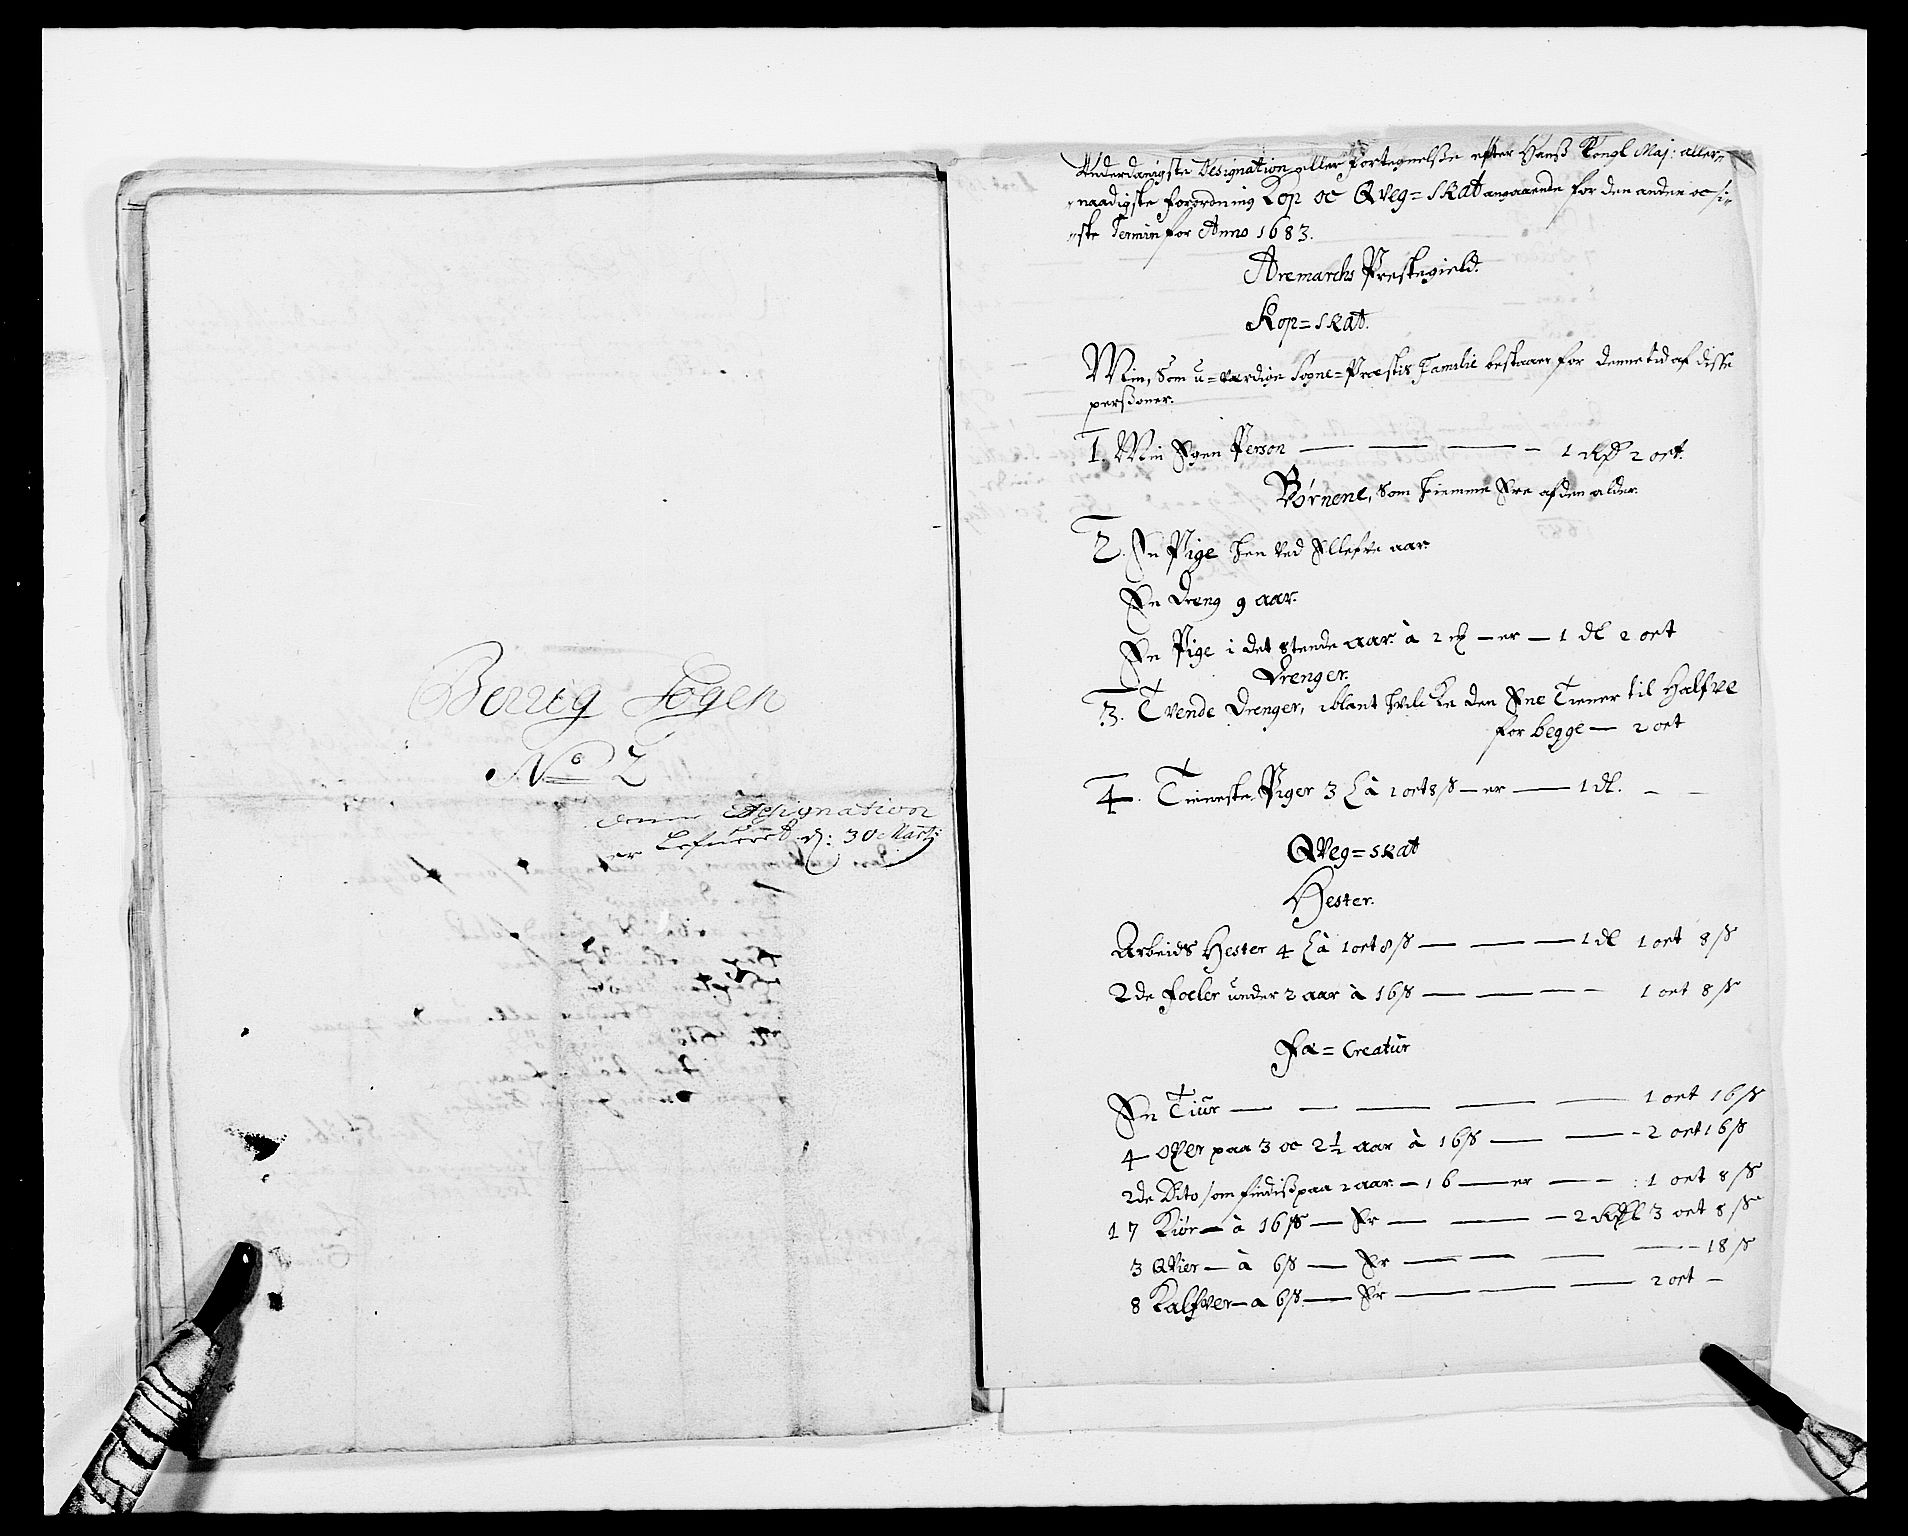 Berrig Sogen
No 2
denne Designation
er Lefuerit d: 30 Martj
Underdanigste Designation eller fortegnelsse efter Hanß Kongl Maj: aller-
naadigste forordning Kop oc Qveg=skat angaaende for den anden oc si-
ste Termin for Anno 1683.
Aremarchs Prestegield.
Kop=skat.
Min, som u=værdige Sogne=Præstis Familie bestaaer for denne tid af disse
perßoner.
1. Min Egen Person — — — 1 Rdl 2 ort.
Børnene, som hiemme Ere af den alder.
2. En Pige hen ved Ellefve aar
En Dreng 9 aar.
En Pige i det 8tende aar. à 2 — er — 1 dl 2 ort
Drenger.
3. Tvende Drenger, iblant hvilke den Ene Tiener til Halfve
for begge — 2 ort
4. Tieneste Piger 3 à 1 ort 8 ß — er — 1 dl.
Qveg=skat
Hester.
Arbeids Hester 4 à 1 ort 8 ß — — — 1 dl 1 ort 8 ß
2de Foeler under 2 aar à 16 ß — — — 1 ort 8 ß
Fæ=Creatur
En Tiur — — — — — 1 ort 16 ß
4 Oxer paa 3 oc 2½ aar à 16 ß — — 2 ort 16 ß
2de Dito som findiß paa 2 aar — 16 — er — — 1 ort 8 ß
17 Kiør — à 16 ß — Er — — — 2 Rdl 3 ort 8 ß
3 Qvier — à 6 ß — Er — — — — 18 ß
8 Kalfver — a 6 ß — Er — — — 2 ort —